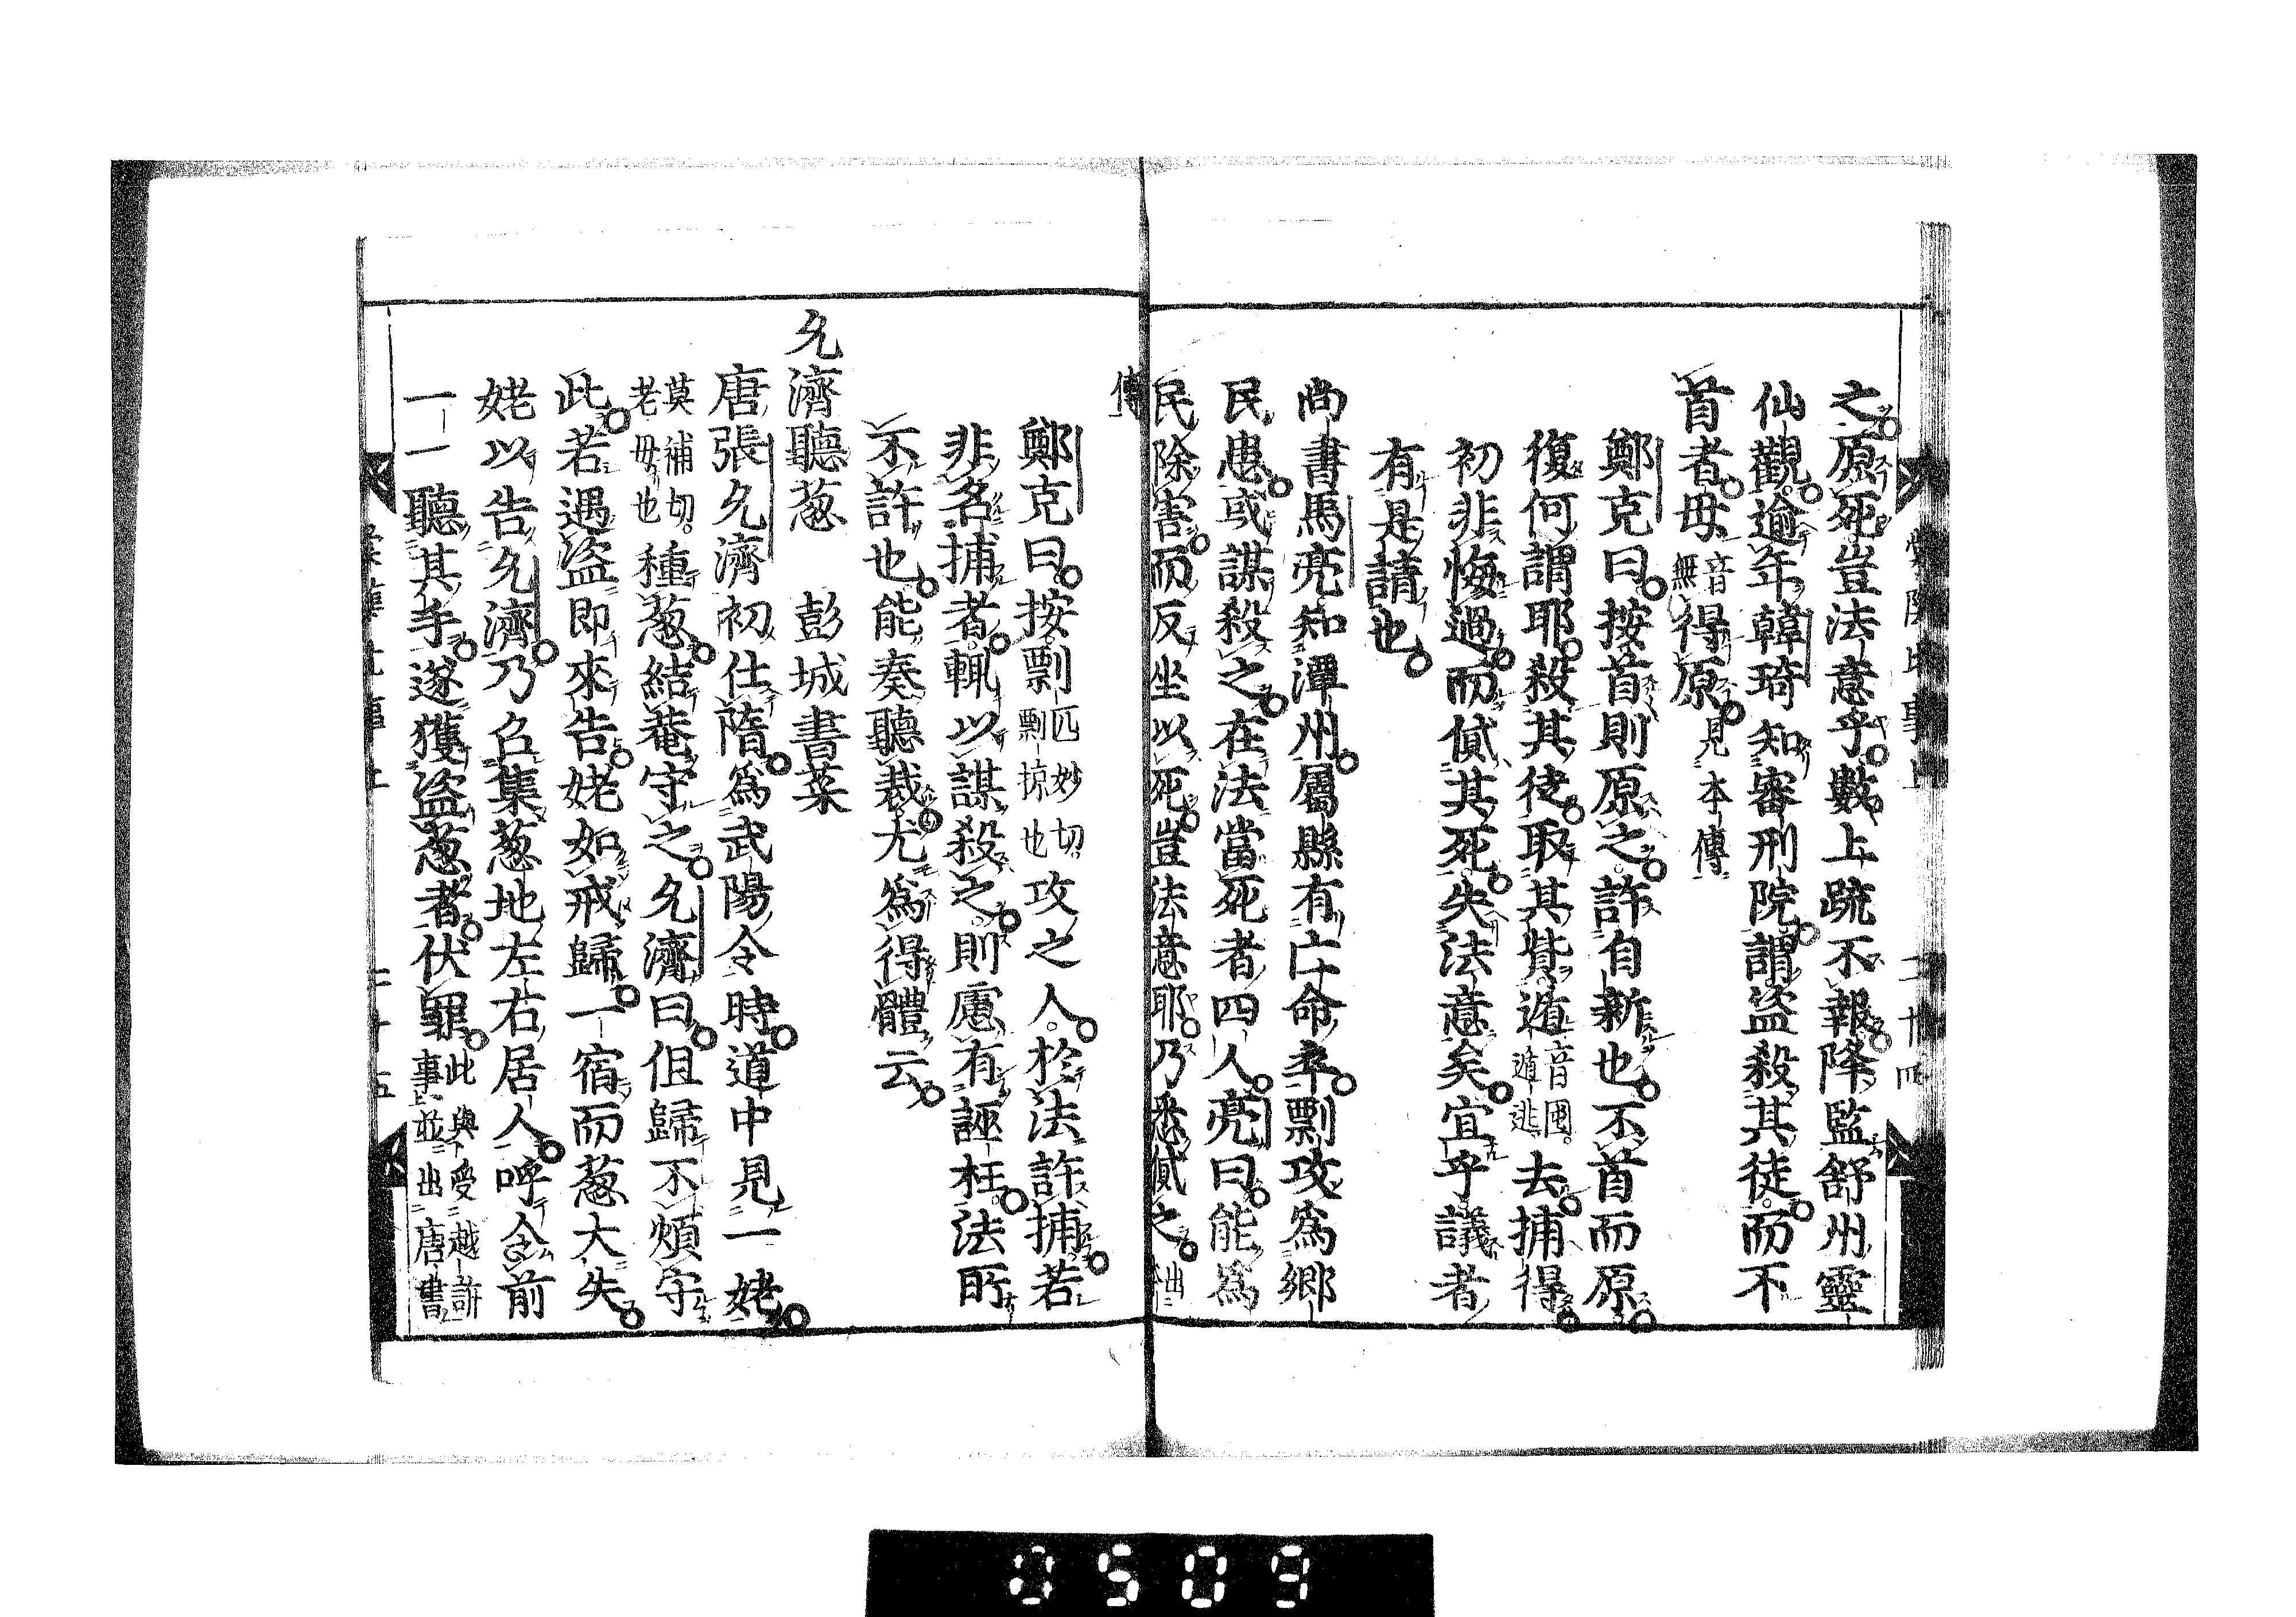 之原死豈法意乎數上疏不報降監舒州靈
仙觀逾年韓琦知審刑院謂盜殺其徒而不
首者毋音無得原見本傳
鄭克曰按首則原之許自新也不首而原
復何謂耶殺其徒取其貲遁音囤。遁逃去捕得
初非悔過而貸其死失法意矣宜乎議者
有是請也
尚書馬亮知潭州屬縣有亡命卒剽攻爲鄉
民患或謀殺之在法當死者四人亮曰能爲
民除害而反坐以死豈法意耶乃悉貸之出
傳
鄭克曰按剽匹妙切。剽掠也攻之人於法許捕若
非名捕者輒以謀殺之則慮有誣枉法所
不許也能奏聽裁尤爲得體云
允濟聽葱 彭城書菜
唐張允濟初仕隋爲武陽令時道中見一姥
莫補切。老毋也種葱結菴守之允濟曰但歸不煩守
此若遇盜即來告姥如戒歸一宿而葱大失
姥以告允濟乃召集葱地左右居人呼令前
一一聽其手遂獲盜葱者伏罪此與受越訴事並出唐書